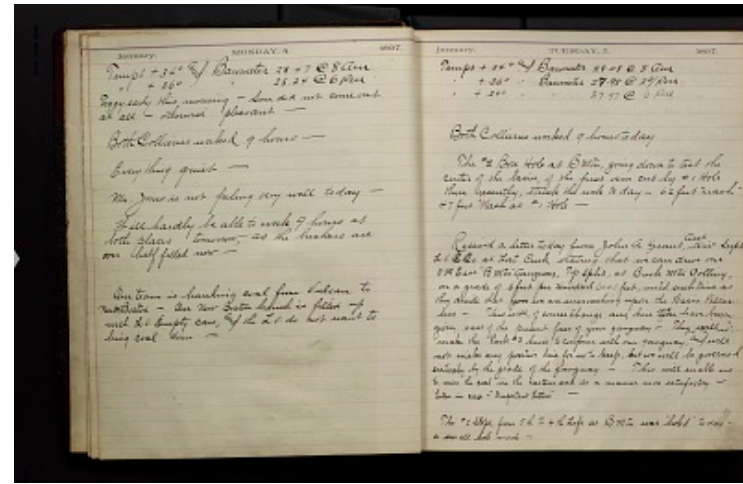 January. MONDAY, 4. 1897.
Temp + 34° @ Barometer 28.47 @ 8 am
" + 36° " 28.24 @ 6 Pm
Foggy early this morning – Sun did not come out
at all – otherwise pleasant –
Both Collieries worked 9 hours –
Everything quiet –
Mr Jones is not feeling very well today –
Will hardly be able to work 9 hours at
both places tomorrow, as the breakers are
over half filled now –
Our team is hauling coal from Vulcan to
New Boston – Our New Boston branch is filled up
with L.V. Empty cars, & the L.V. do not want to
bring coal down –
January. TUESDAY, 5. 1897.
Temp + 34° @ Barometer 28.08 @ 8 am
" + 36° " Barometer 27.98 @ 2 Pm
" + 34° " 27.97 @ 6 Pm
Both Collieries worked 9 hours today
The #2 Bore Hole at B Mtn, going down to test the
center of the basin, of the first vein cut by #1 Hole
there recently, struck the rock to day – 62 feet wash –
47 feet Wash at #1 Hole –
Received a letter today from John R
L.V. at Lost Creek, stating that we can drive our
B Mtn Gangway, 7 ft Split, at Buck Mtn Colliery,
on a grade of 6 feet per hundred feet, until such time as
they decide that you are approaching upon the Basin Pillar
line – This will of course change any lines
given, east of the present face of your gangway – They will
make the to conform with our gangway, & will
not make any positive line for us to keep, but we will be governed
entirely by the grade of the Gangway – This will enable us
to mine the coal in the basin in a manner more satisfactory –
Letter in "Important letters"
The #2 Slope from 5th to 4th Lift at B Mtn was "holed" to day –
a small hole made –